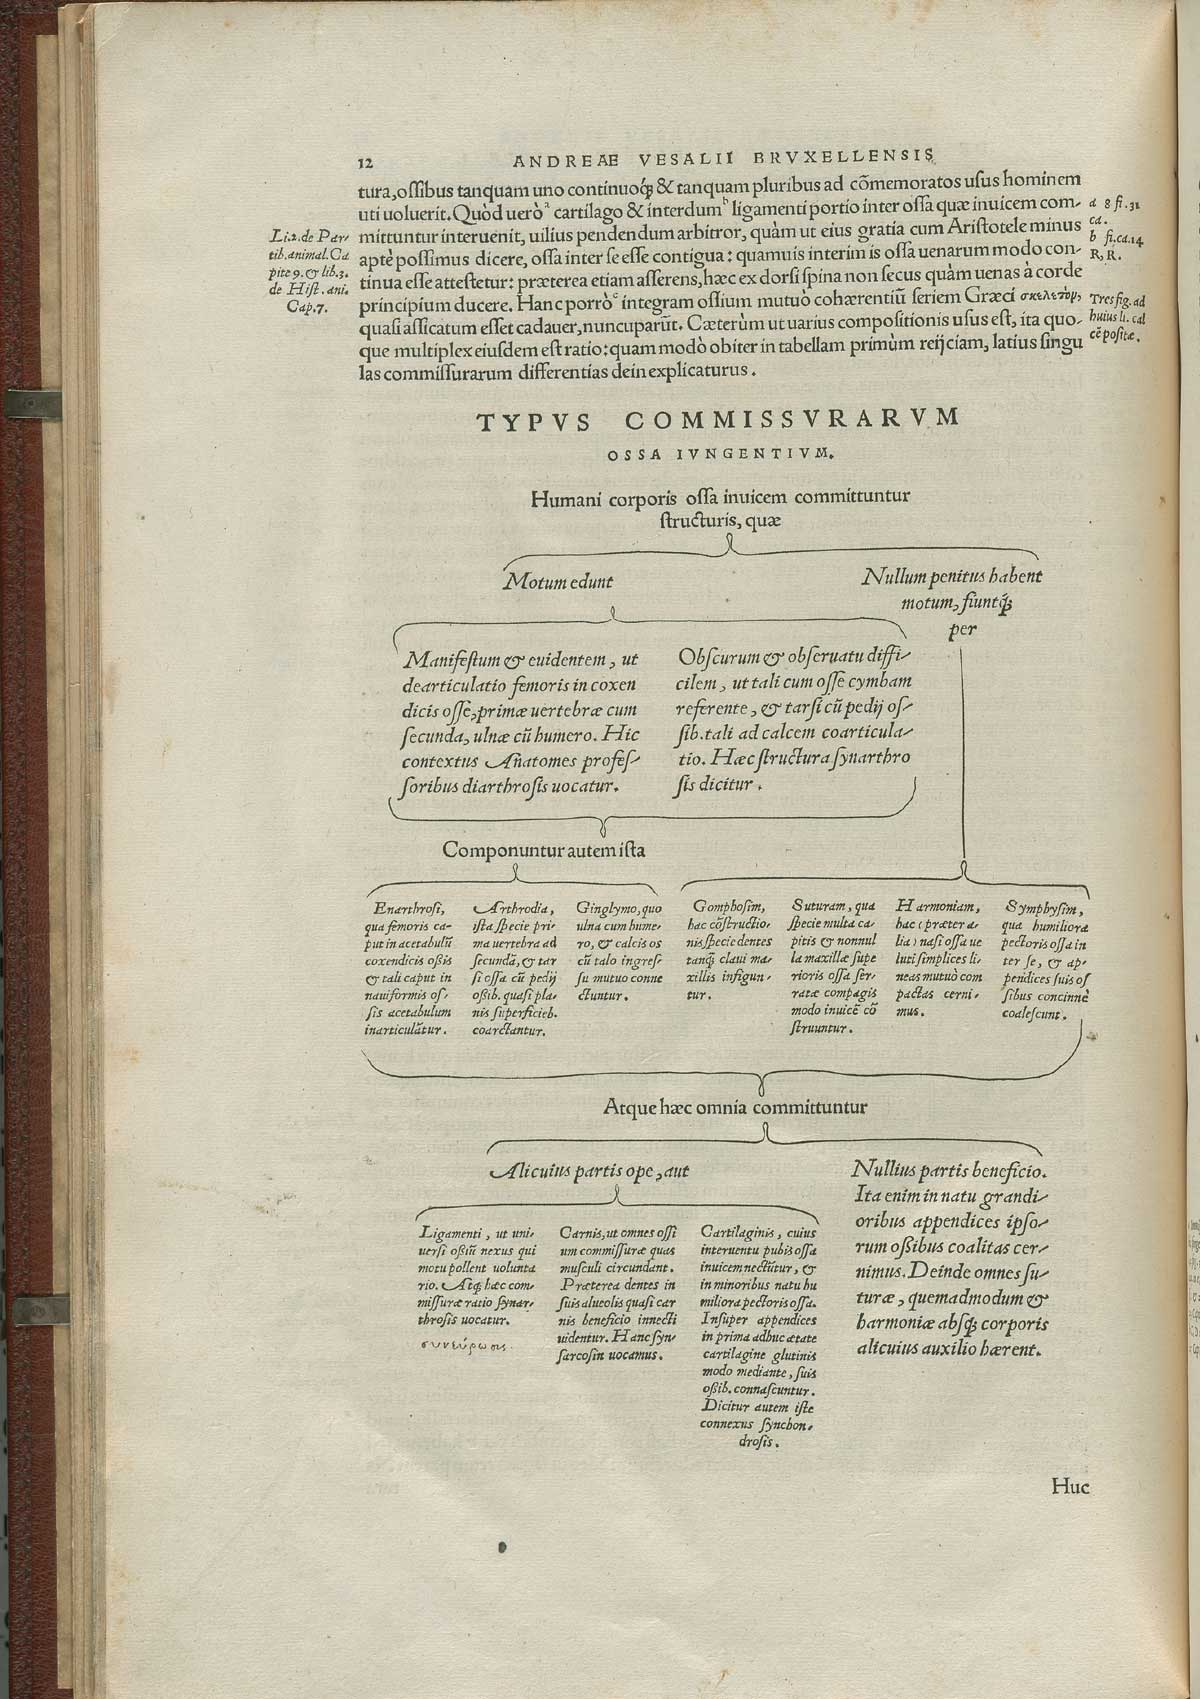 12 ANDREAE VESALII BRVXELLENSIS
tura, ossibus tanquam uno continuoq́; & tanquam pluribus ad cõmemoratos usus hominem
uti uoluerit. Quòd uerò a cartilago & interdum b ligamenti portio inter ossa quæ inuicem com-
mittuntur interuenit, uilius pendendum arbitror, quàm ut eius gratia cum Aristotele minus
aptè possimus dicere, ossa inter se esse contigua: quamuis interim is ossa uenarum modo con-
tinua esse attestetur: præterea etiam asserens, hæc ex dorsi spina non secus quàm uenas à corde
principium ducere. Hanc porrò c integram ossium mutuò cohærentiũ seriem Græci σκελετὸν,
quasi assicatum esset cadauer, nuncuparũt. Cæterùm ut uarius compositionis usus est, ita quo-
que multiplex eiusdem est ratio: quam modò obiter in tabellam primùm reijciam, latius singu
las commissurarum differentias dein explicaturus.
Li.2. de Par-
tib. animal. Ca
pite 9. & lib.3.
de Hist. ani.
Cap.7.
a 8 fi. 31
ca.
b fi. ca. 14
R, R.
Tres fig. ad
huius li. cal
cẽ positæ.
TYPVS COMMISSVRARVM
OSSA IVNGENTIVM.
Humani corporis ossa inuicem committuntur
structuris, quæ
Motum edunt
Nullum penitus habent
motum, fiuntq́;
per
Manifestum & euidentem, ut
dearticulatio femoris in coxen
dicis osse, primæ uertebræ cum
secunda, ulnæ cũ humero. Hic
contextus Añatomes profes-
soribus diarthrosis uocatur.
Obscurum & obseruatu diffi-
cilem, ut tali cum osse cymbam
referente, & tarsi cũ pedij os-
sib. tali ad calcem coarticula-
tio. Hæc structura synarthro
sis dicitur.
Componuntur autem ista
Enarthrosi,
qua femoris ca-
put in acetabulũ
coxendicis oßis
& tali caput in
nauiformis os-
sis acetabulum
inarticulãtur.
Arthrodia,
ista specie pri-
ma uertebra ad
secundã, & tar
si ossa cũ pedij
oßib. quasi pla-
nis superficieb.
coarctantur.
Ginglymo, quo
ulna cum hume-
ro, & calcis os
cũ talo ingres-
su mutuo conne
ctuntur.
Gomphosim,
hac cõstructio-
nis specie dentes
tanq̃ claui ma-
xillis infigun-
tur.
Suturam, qua
specie multa ca-
pitis & nonnul
la maxillæ supe
rioris ossa ser-
ratæ compagis
modo inuicẽ cõ
struuntur.
Harmoniam,
hac (præter a-
lia) nasi ossa ue
luti simplices li-
neas mutuò com
pactas cerni-
mus.
Symphysim,
qua humiliora
pectoris ossa in
ter se, & ap-
pendices suis os
sibus concinnè
coalescunt.
Atque hæc omnia committuntur
Alicuius partis ope, aut
Nullius partis beneficio.
Ita enim in natu grandi-
oribus appendices ipso-
rum oßibus coalitas cer-
nimus. Deinde omnes su-
turæ, quemadmodum &
harmoniæ absq; corporis
alicuius auxilio hærent.
Ligamenti, ut uni-
uersi oßiũ nexus qui
motu pollent uolunta
rio. Atq; hæc com-
missuræ ratio synar-
throsis uocatur.
συνεύρωσις.
Carnis, ut omnes ossi
um commissuræ quas
musculi circundant.
Præterea dentes in
suis alueolis quasi car
nis beneficio innecti
uidentur. Hanc syn-
sarcosin uocamus.
Cartilaginis, cuius
interuentu pubis ossa
inuicem nectũtur, &
in minoribus natu hu
miliora pectoris ossa.
Insuper appendices
in prima adhuc ætate
cartilagine glutinis
modo mediante, suis
oßib. connascuntur.
Dicitur autem iste
connexus synchon-
drosis.
Huc